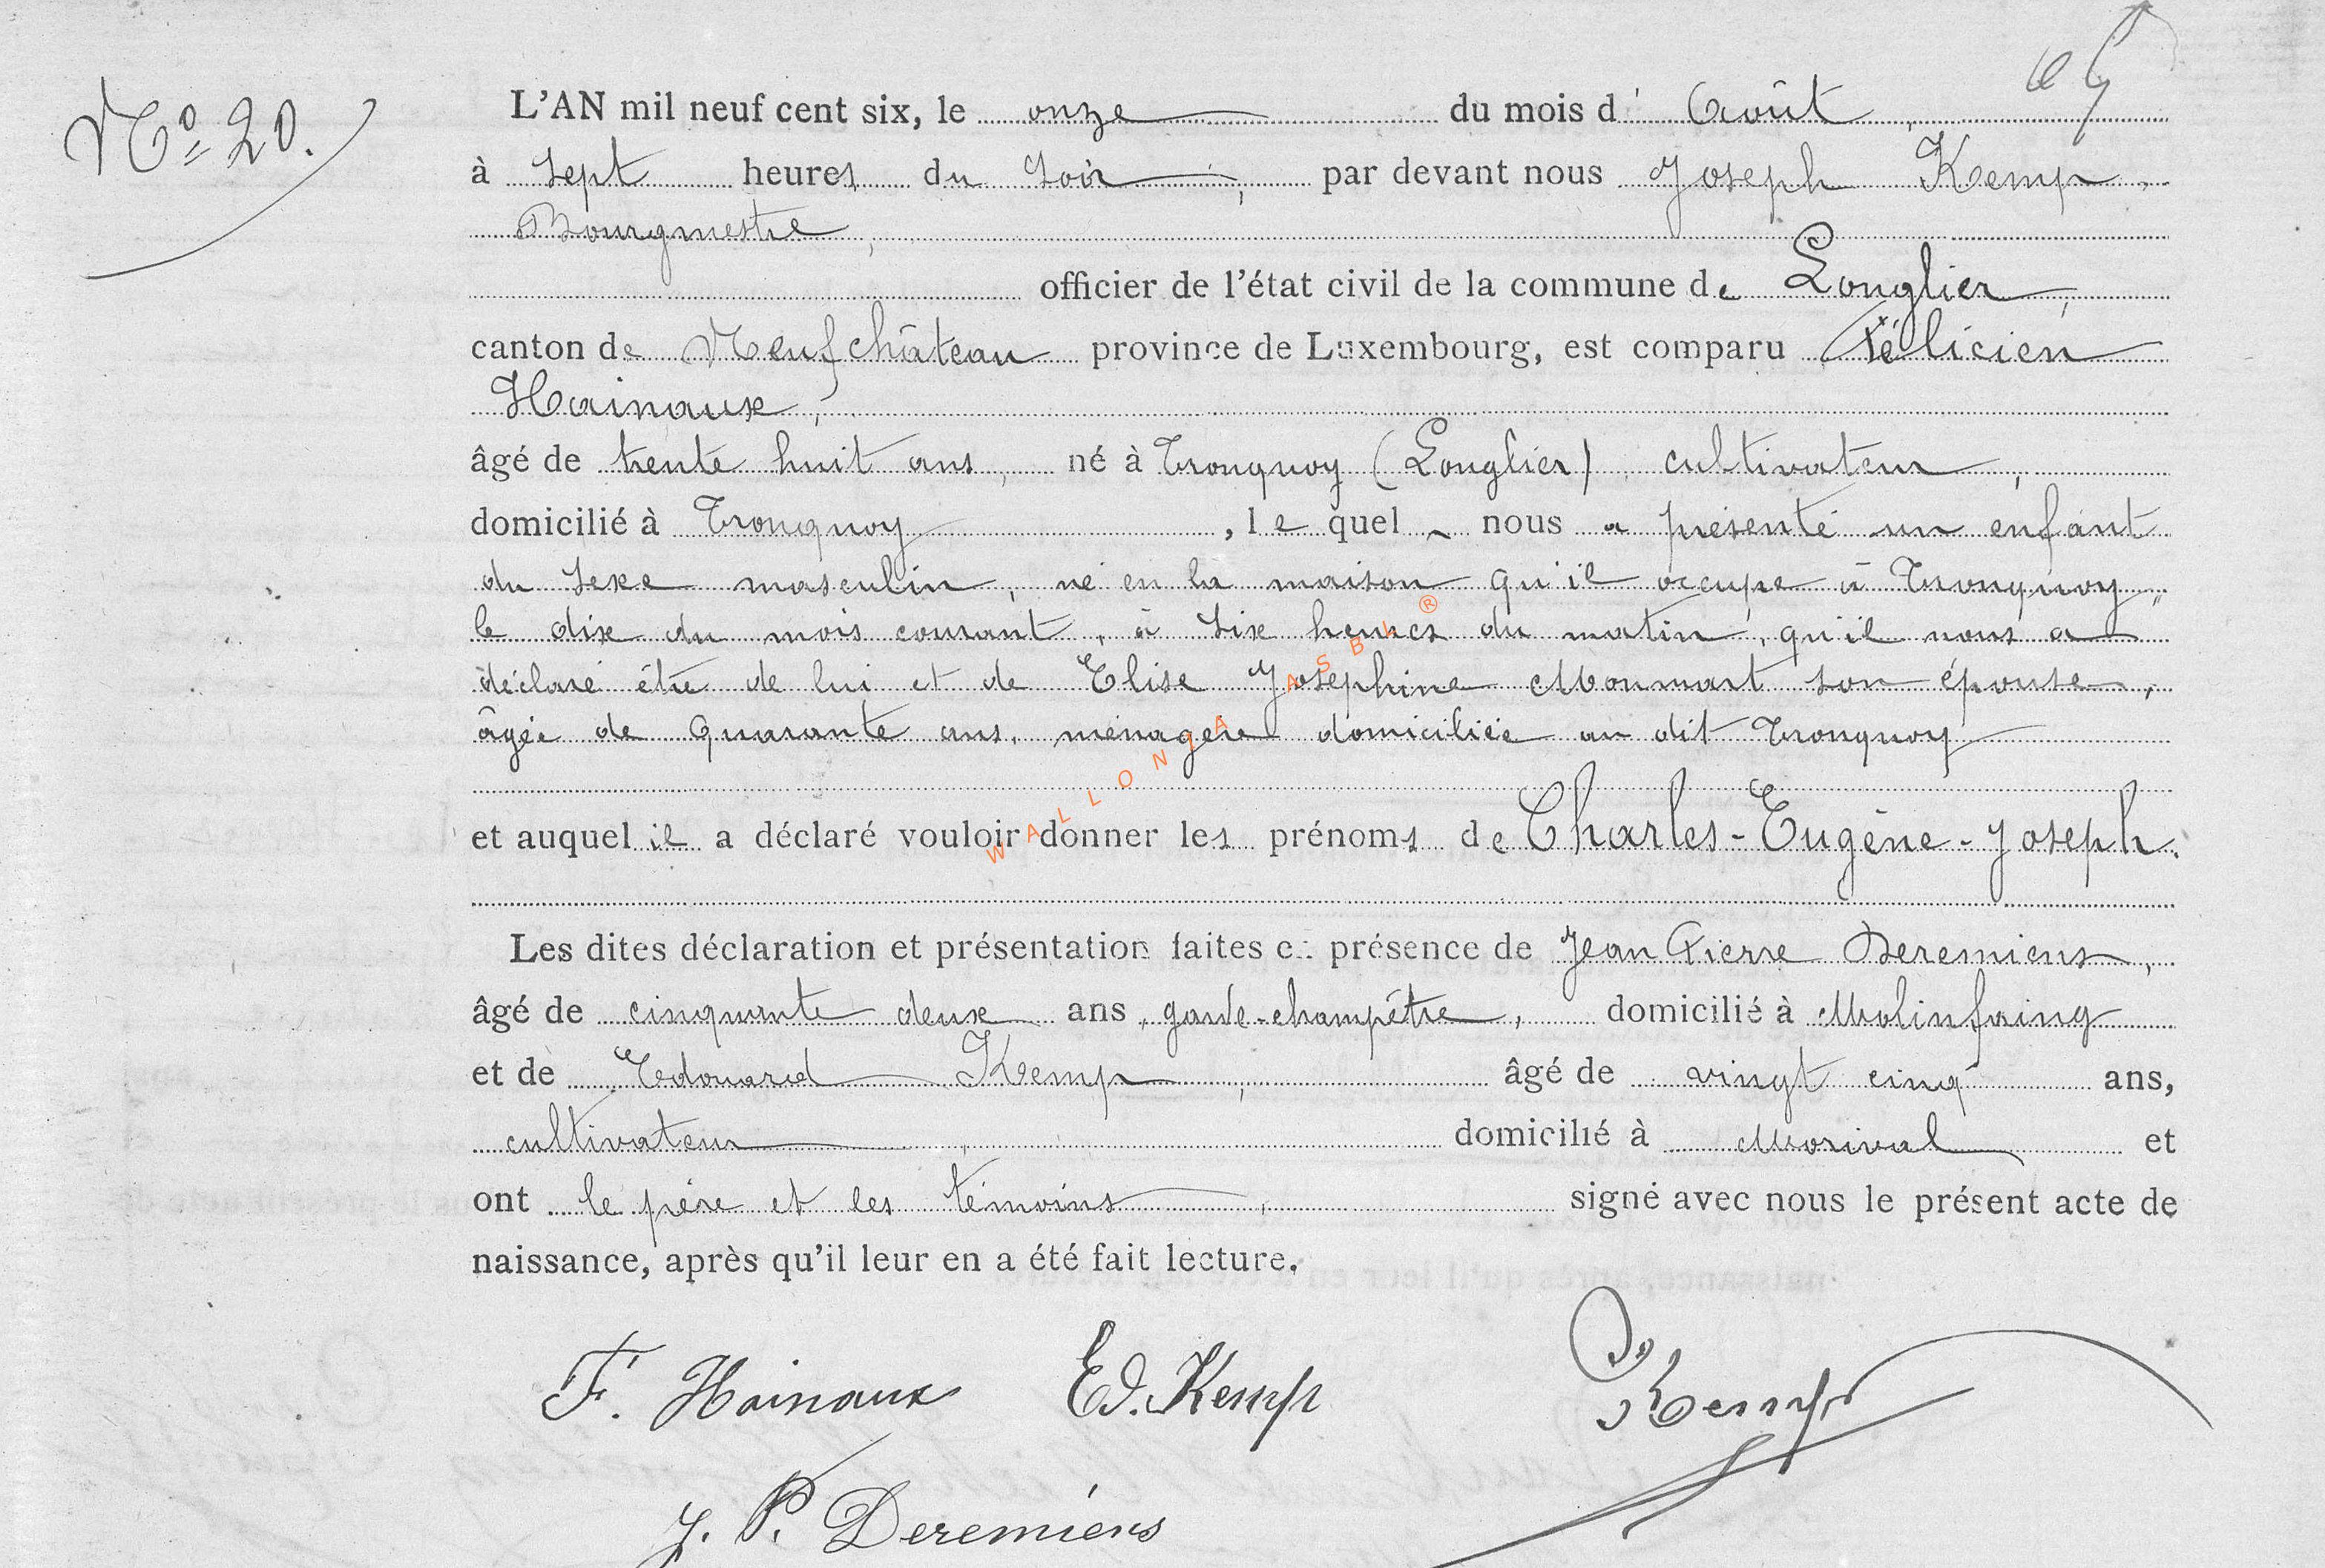 Nº 20.
L'AN mil neuf cent six, le onze du mois d' Août,
à sept heures du soir, par devant nous Joseph Kemp,
Bourgmestre,
officier de l'état civil de la commune de Longlier,
canton de Neufchâteau province de Luxembourg, est comparu Félicien
Hainaux,
âgé de trente huit ans, né à Tronquoy (Longlier) cultivateur,
domicilié à Tronquoy, lequel nous a présenté un enfant
du sexe masculin, né en la maison qu'il occupe à Tronquoy,
le dix du mois courant, à six heures du matin, qu'il nous a
déclaré être de lui et de Elise Joséphine Monmart son épouse,
âgée de quarante ans, ménagère domiciliée au dit Tronquoy
et auquel il a déclaré vouloir donner les prénoms de Charles-Eugène-Joseph.
Les dites déclaration et présentation faites en présence de Jean Pierre Deremiens,
âgé de cinquante deux ans, garde-champêtre, domicilié à Molinfaing
et de Edouard Kemp, âgé de vingt cinq ans,
cultivateur, domicilié à Morival et
ont le père et les témoins, signé avec nous le présent acte de
naissance, après qu'il leur en a été fait lecture.
F. Hainaux Ed. Kemp Kemp
J. P. Deremiens
WALLONIA ASBL ®